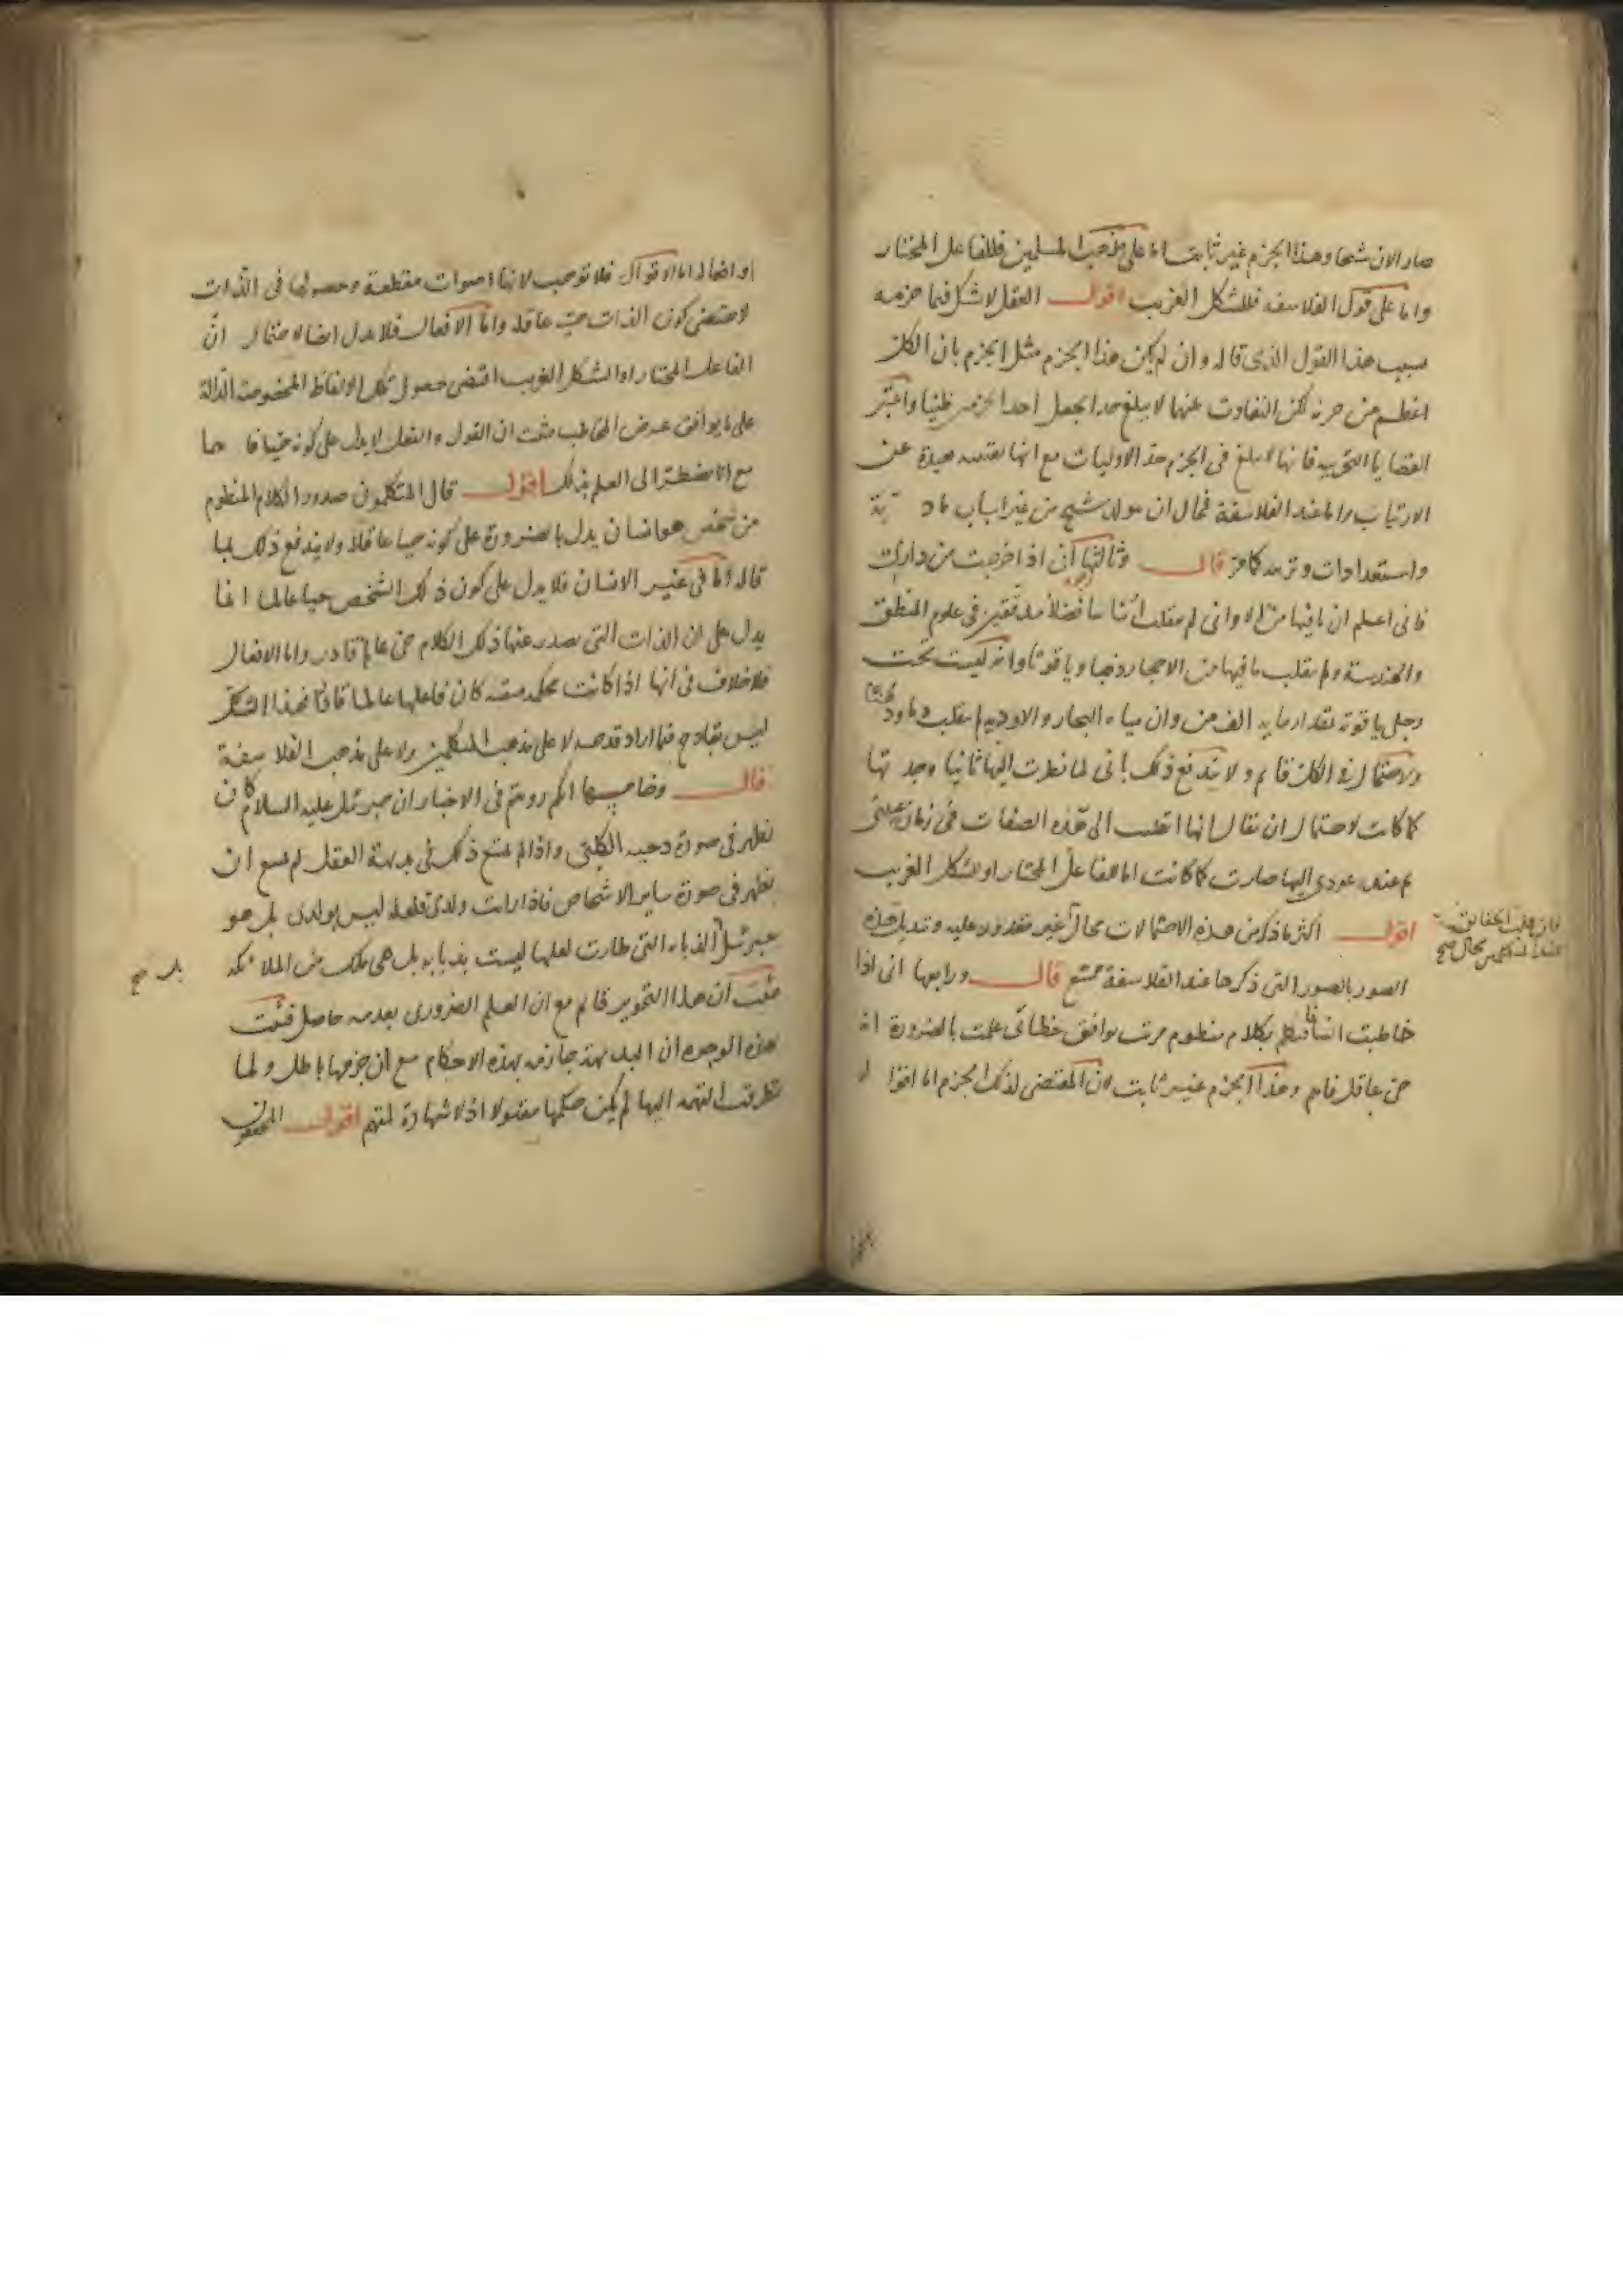 صار الان شيخا وهذا الجزم غير ثابت اما على مذهب المسلمين فللفاعل المختار
واما على قول الفلاسفه فللشكل الغريب اقول العقل لا شك فيما جزمه
بسبب هذا القول الذى قاله وان لم يكن هذا الجزم مثل الجزم بان الكل
اعظم من جزئه لكن التفاوت عنها لا يبلغ حدا يجعل احد الجزمين ظنيا واعتبر
القضايا التجربيه فانها لا تبلغ فى الجزم حد الاوليات مع انها يقينيه بعيدة عن
الارتياب واما عند الفلاسفة فمحال ان يتولد شيخ من غير اسباب ماديته
واستعدادات وتربيه كافر قال وثالثها انى اذا خرجت من دارى
فانى اعلم ان ما فيها من الاوانى لم ينقلب اناسا فضلا مدققين فى علوم المنطق
والهندسة ولم ينقلب ما فيها من الاحجار ذهبا وياقوتا وانه ليست تحت
رجلى ياقوتة بمقدار مايه الف من وان مياه البحار والاوديه لم ينقلب دما ودهنا
والاحتمال فى الكل قائم ولا يندفع ذلك بانى لما نظرت اليها ثانيا وجدتها
كما كانت لاحتمال ان يقال انها انقلبت الى هذه الصفات فى زمان غيبتى
ثم عند عودى اليها صارت كما كانت اما للفاعل المختار او للشكل الغريب
اقول اكثر ما ذكر من هذه الاحتمالات محال غير مقدور عليه وتبديل هذه
فان قلب الحقائق
عند المتكلمين محال صح
الصور بالصور التى ذكرها عند الفلاسفة ممتنع قال ورابعها انى اذا
خاطبت انسانا فتكلم بكلام منظوم مرتب يوافق خطابى علمت بالضرورة انه
حى عاقل فاهم وهذا الجزم غير ثابت لان المقتضى لذلك الجزم اما اقواله
او افعاله اما الاقوال فلا توجب لانها اصوات مقطعة وحصولها فى الذات
لا يقتضى كون الذات حية عاقلة واما الافعال فلا يدل ايضا لاحتمال ان
الفاعل المختار او الشكل الغريب اقتضى حصول تلك الالفاظ المخصوصة الدالة
على ما يوافق غرض المخاطب فثبت ان القول والفعل لا يدل على كونه حيا فاهما
مع انا نضطر الى العلم بذلك اقول قال المتكلمون صدور الكلام المنظوم
من شخص هو انسان يدل بالضرورة على كونه حيا عاقلا ولا يندفع ذلك بما
قاله اما فى غير الانسان فلا يدل على كون ذلك الشخص حيا عالما انما
يدل على ان الذات التى يصدر عنها ذلك الكلام حى عالم قادر واما الافعال
فلا خلاف فى انها اذا كانت محكمة متقنه كان فاعلها عالما قادرا فهذا الشك
ليس بقادح فيما اراد قدحه لا على مذهب المتكلمين ولا على مذهب الفلاسفة
قال وخامسها انكم رويتم فى الاخبار ان جبرئيل عليه السلام كان
يظهر فى صورة دحيه الكلبى واذا لم يمتنع ذلك فى بديهة العقل لم يمتنع ان
يظهر فى صورة ساير الاشخاص فاذا رايت ولدى فلعله ليس بولدى بل هو
جبرئيل الذبابه التى طارت لعلها ليست بذبابه بل هى ملك من الملائكه
بل صح
فثبت ان هذا التجويز قائم مع ان العلم الضرورى بعدمه حاصل فثبت
بهذه الوجوه ان البديهة جازمه بهذه الاحكام مع ان جزمها باطل ولما
تطرقت التهمه اليها لم يكن حكمها مقبولا اذ لا شهادة لمتهم اقول المحققون